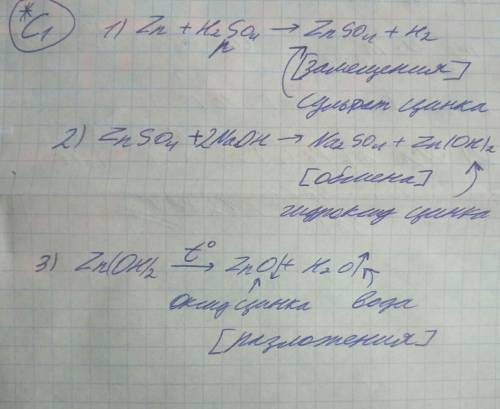 *C1
1) Zn + H2SO4 → ZnSO4 + H2
р
[замещения]
сульфат цинка
2) ZnSO4 + 2NaOH → Na2SO4 + Zn(OH)2
[обмена]
гидроксид цинка
3) Zn(OH)2 t° → ZnO↓ + H2O↑
оксид цинка вода
[разложения]